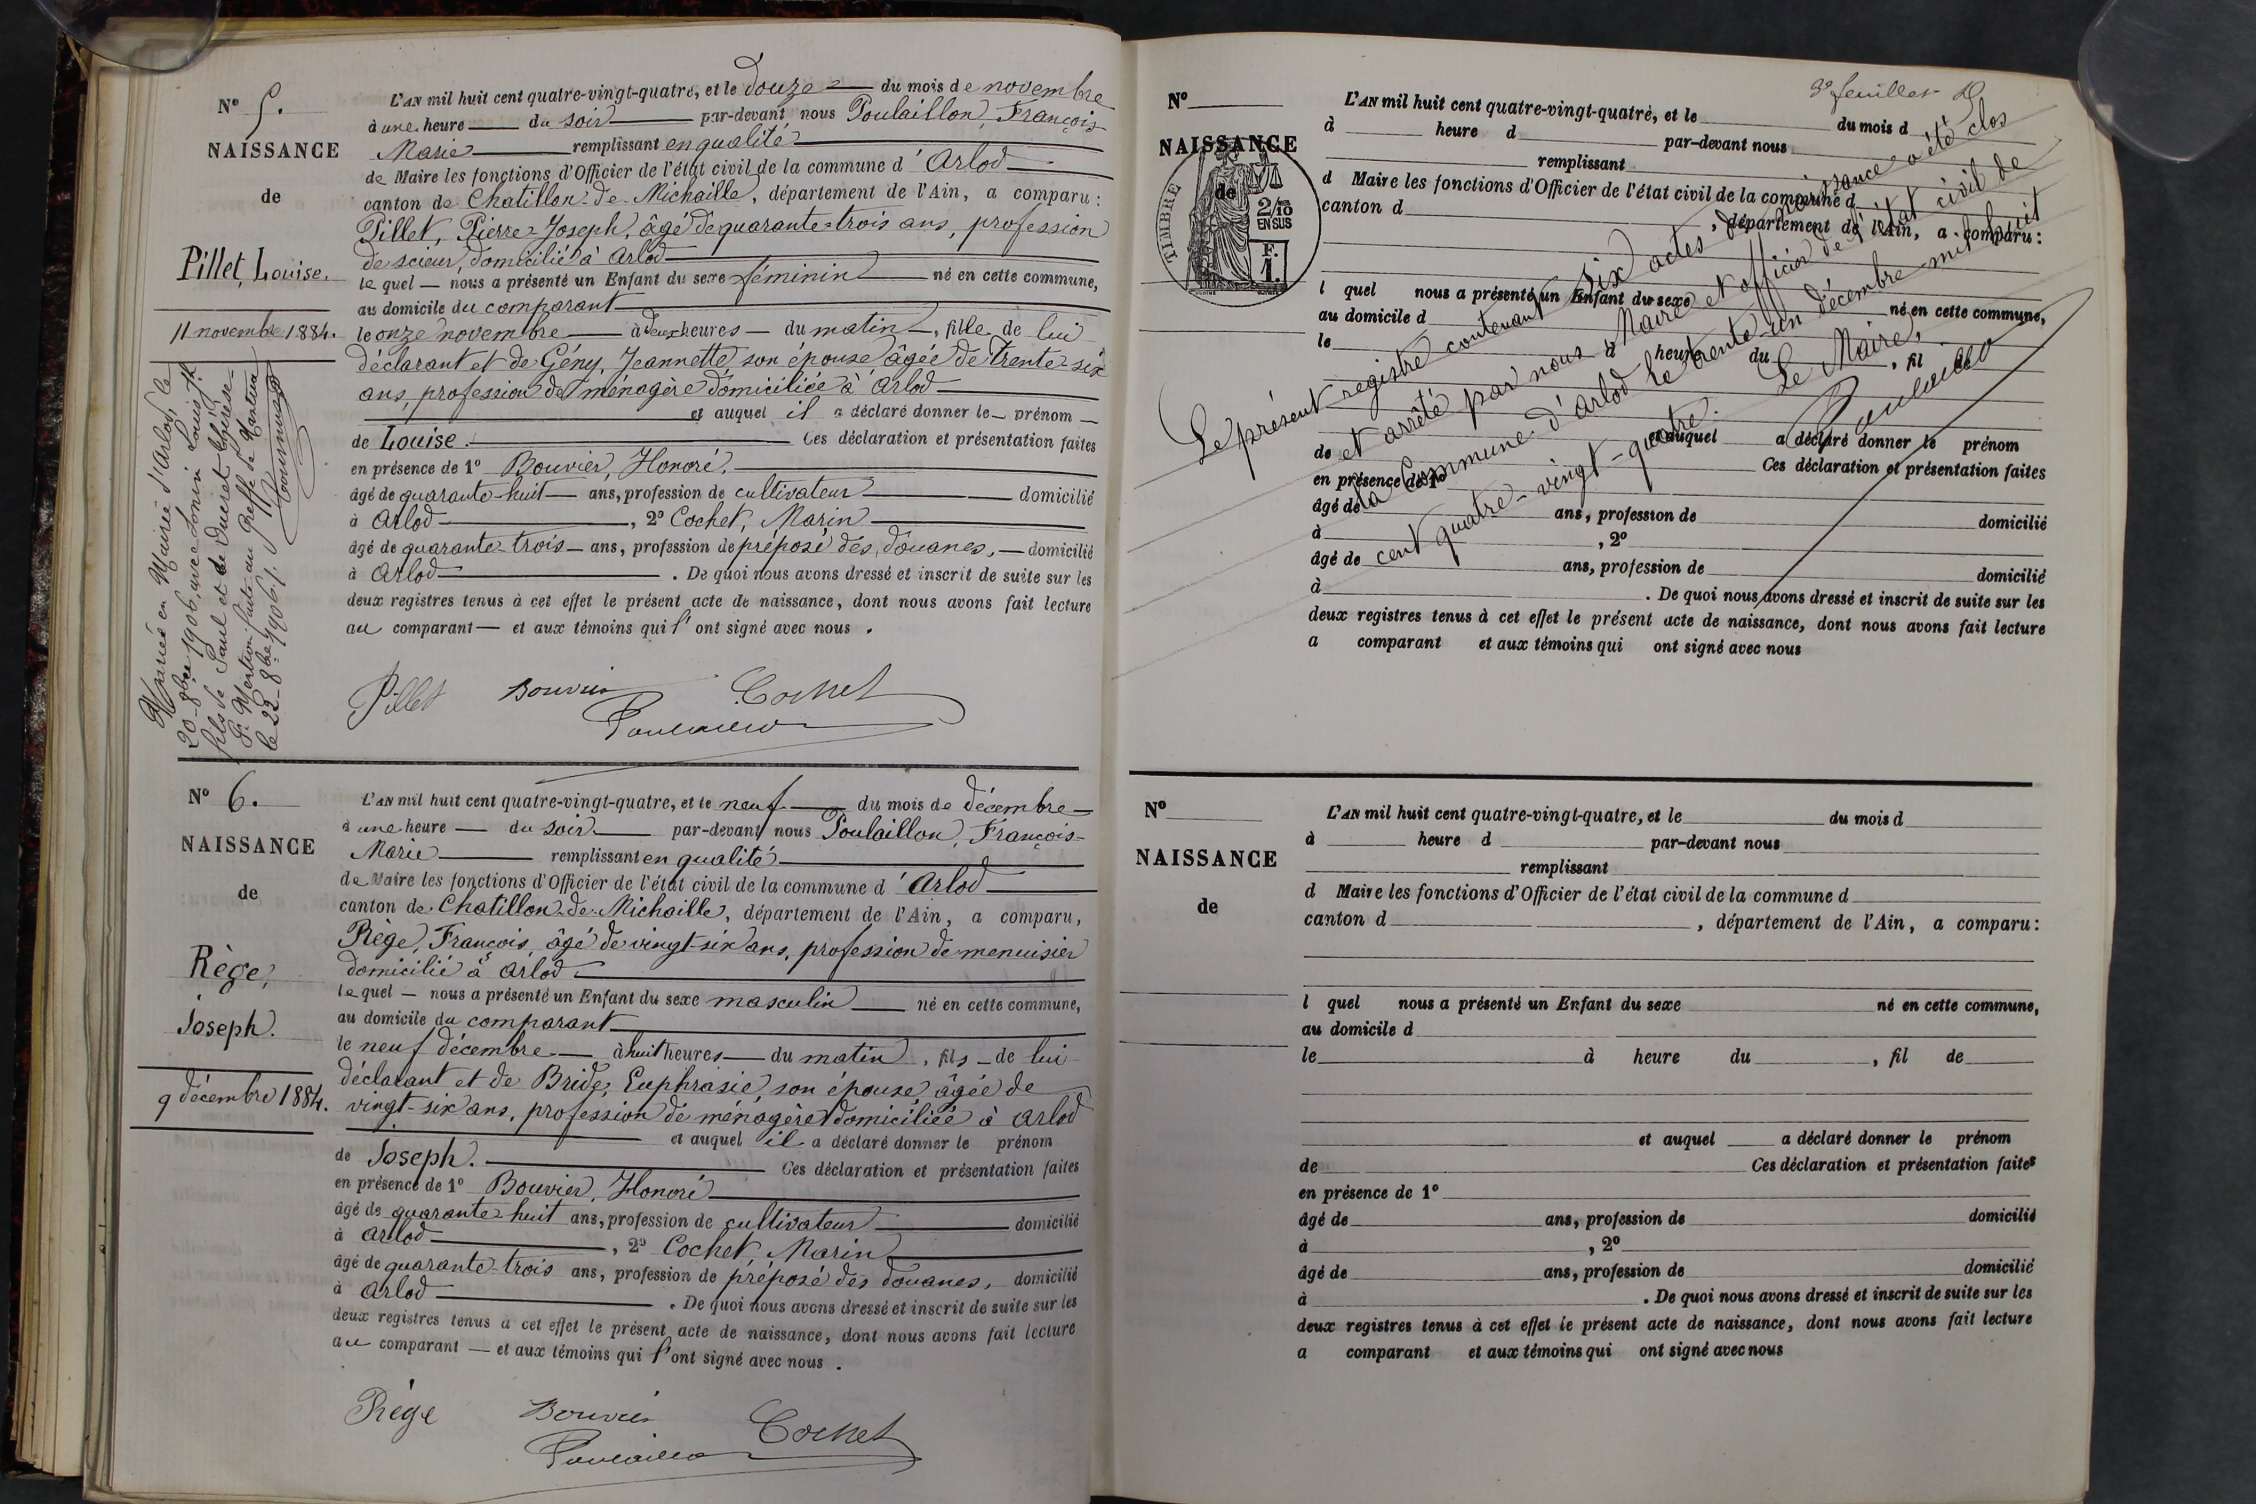 N° 5.
NAISSANCE
de
Pillet, Louise.
11 novembre 1884.
Mariée en Mairie d'Arlod, le
20 8bre 1906, avec Sonin Louis Jh
fils de Paul et de Ducret Thérèse
Pr. Mention faite au Greffe de Nantua
le 22 8bre 1906.
L'AN mil huit cent quatre-vingt-quatre, et le douze du mois de novembre
à une heure du soir par-devant nous Poulaillon, François
Marie remplissant en qualité
de Maire les fonctions d'Officier de l'état civil de la commune d'Arlod
canton de Chatillon-de-Michaille, département de l'Ain, a comparu :
Pillet, Pierre-Joseph, âgé de quarante-trois ans, profession
de scieur, domicilié à Arlod
lequel nous a présenté un Enfant du sexe féminin né en cette commune,
au domicile du comparant
le onze novembre à deux heures du matin, fille de lui
déclarant et de Gény, Jeannette, son épouse âgée de trente-six
ans, profession de ménagère domiciliée à Arlod
et auquel il a déclaré donner le prénom
de Louise. Ces déclaration et présentation faites
en présence de 1° Bouvier, Honoré,
âgé de quarante-huit ans, profession de cultivateur domicilié
à Arlod, 2° Cochet, Marin
âgé de quarante-trois ans, profession de préposé des douanes, domicilié
à Arlod. De quoi nous avons dressé et inscrit de suite sur les
deux registres tenus à cet effet le présent acte de naissance, dont nous avons fait lecture
au comparant et aux témoins qui l'ont signé avec nous.
Pillet Bouvier Cochet
Poulaillon
N° 6.
NAISSANCE
de
Rège,
Joseph.
9 décembre 1884.
L'AN mil huit cent quatre-vingt-quatre, et le neuf du mois de décembre
à une heure du soir par-devant nous Poulaillon, François-
Marie remplissant en qualité
de Maire les fonctions d'Officier de l'état civil de la commune d'Arlod
canton de Chatillon-de-Michaille, département de l'Ain, a comparu,
Rège, François, âgé de vingt-six ans, profession de menuisier
domicilié à Arlod
lequel nous a présenté un Enfant du sexe masculin né en cette commune,
au domicile du comparant
le neuf décembre à huit heures du matin, fils de lui
déclarant et de Bride, Euphrasie, son épouse âgée de
vingt-six ans, profession de ménagère domiciliée à Arlod
et auquel il a déclaré donner le prénom
de Joseph. Ces déclaration et présentation faites
en présence de 1° Bouvier, Honoré
âgé de quarante-huit ans, profession de cultivateur domicilié
à Arlod, 2° Cochet, Marin
âgé de quarante-trois ans, profession de préposé des douanes, domicilié
à Arlod. De quoi nous avons dressé et inscrit de suite sur les
deux registres tenus à cet effet le présent acte de naissance, dont nous avons fait lecture
au comparant et aux témoins qui l'ont signé avec nous.
Rège Bouvier Cochet
Poulaillon
3e feuillet
N°
NAISSANCE
de
TIMBRE
2/10
EN SUS
F.
1.
L'AN mil huit cent quatre-vingt-quatre, et le du mois d
à heure d par-devant nous
remplissant
d Maire les fonctions d'Officier de l'état civil de la commune d
canton d , département de l'Ain, a comparu :
l quel nous a présenté un Enfant du sexe né en cette commune,
au domicile d
le à heure du , fil de
et auquel a déclaré donner le prénom
de Ces déclaration et présentation faites
en présence de 1°
âgé de ans, profession de domicilié
à , 2°
âgé de ans, profession de domicilié
à . De quoi nous avons dressé et inscrit de suite sur les
deux registres tenus à cet effet le présent acte de naissance, dont nous avons fait lecture
a comparant et aux témoins qui ont signé avec nous
Le présent registre contenant six actes de naissance a été clos
et arrêté par nous Maire et officier de l'état civil de
la Commune d'Arlod le trente un décembre mil huit
cent quatre-vingt-quatre. Le Maire,
Poulaillon
N°
NAISSANCE
de
L'AN mil huit cent quatre-vingt-quatre, et le du mois d
à heure d par-devant nous
remplissant
d Maire les fonctions d'Officier de l'état civil de la commune d
canton d , département de l'Ain, a comparu :
l quel nous a présenté un Enfant du sexe né en cette commune,
au domicile d
le à heure du , fil de
et auquel a déclaré donner le prénom
de Ces déclaration et présentation faites
en présence de 1°
âgé de ans, profession de domicilié
à , 2°
âgé de ans, profession de domicilié
à . De quoi nous avons dressé et inscrit de suite sur les
deux registres tenus à cet effet le présent acte de naissance, dont nous avons fait lecture
a comparant et aux témoins qui ont signé avec nous